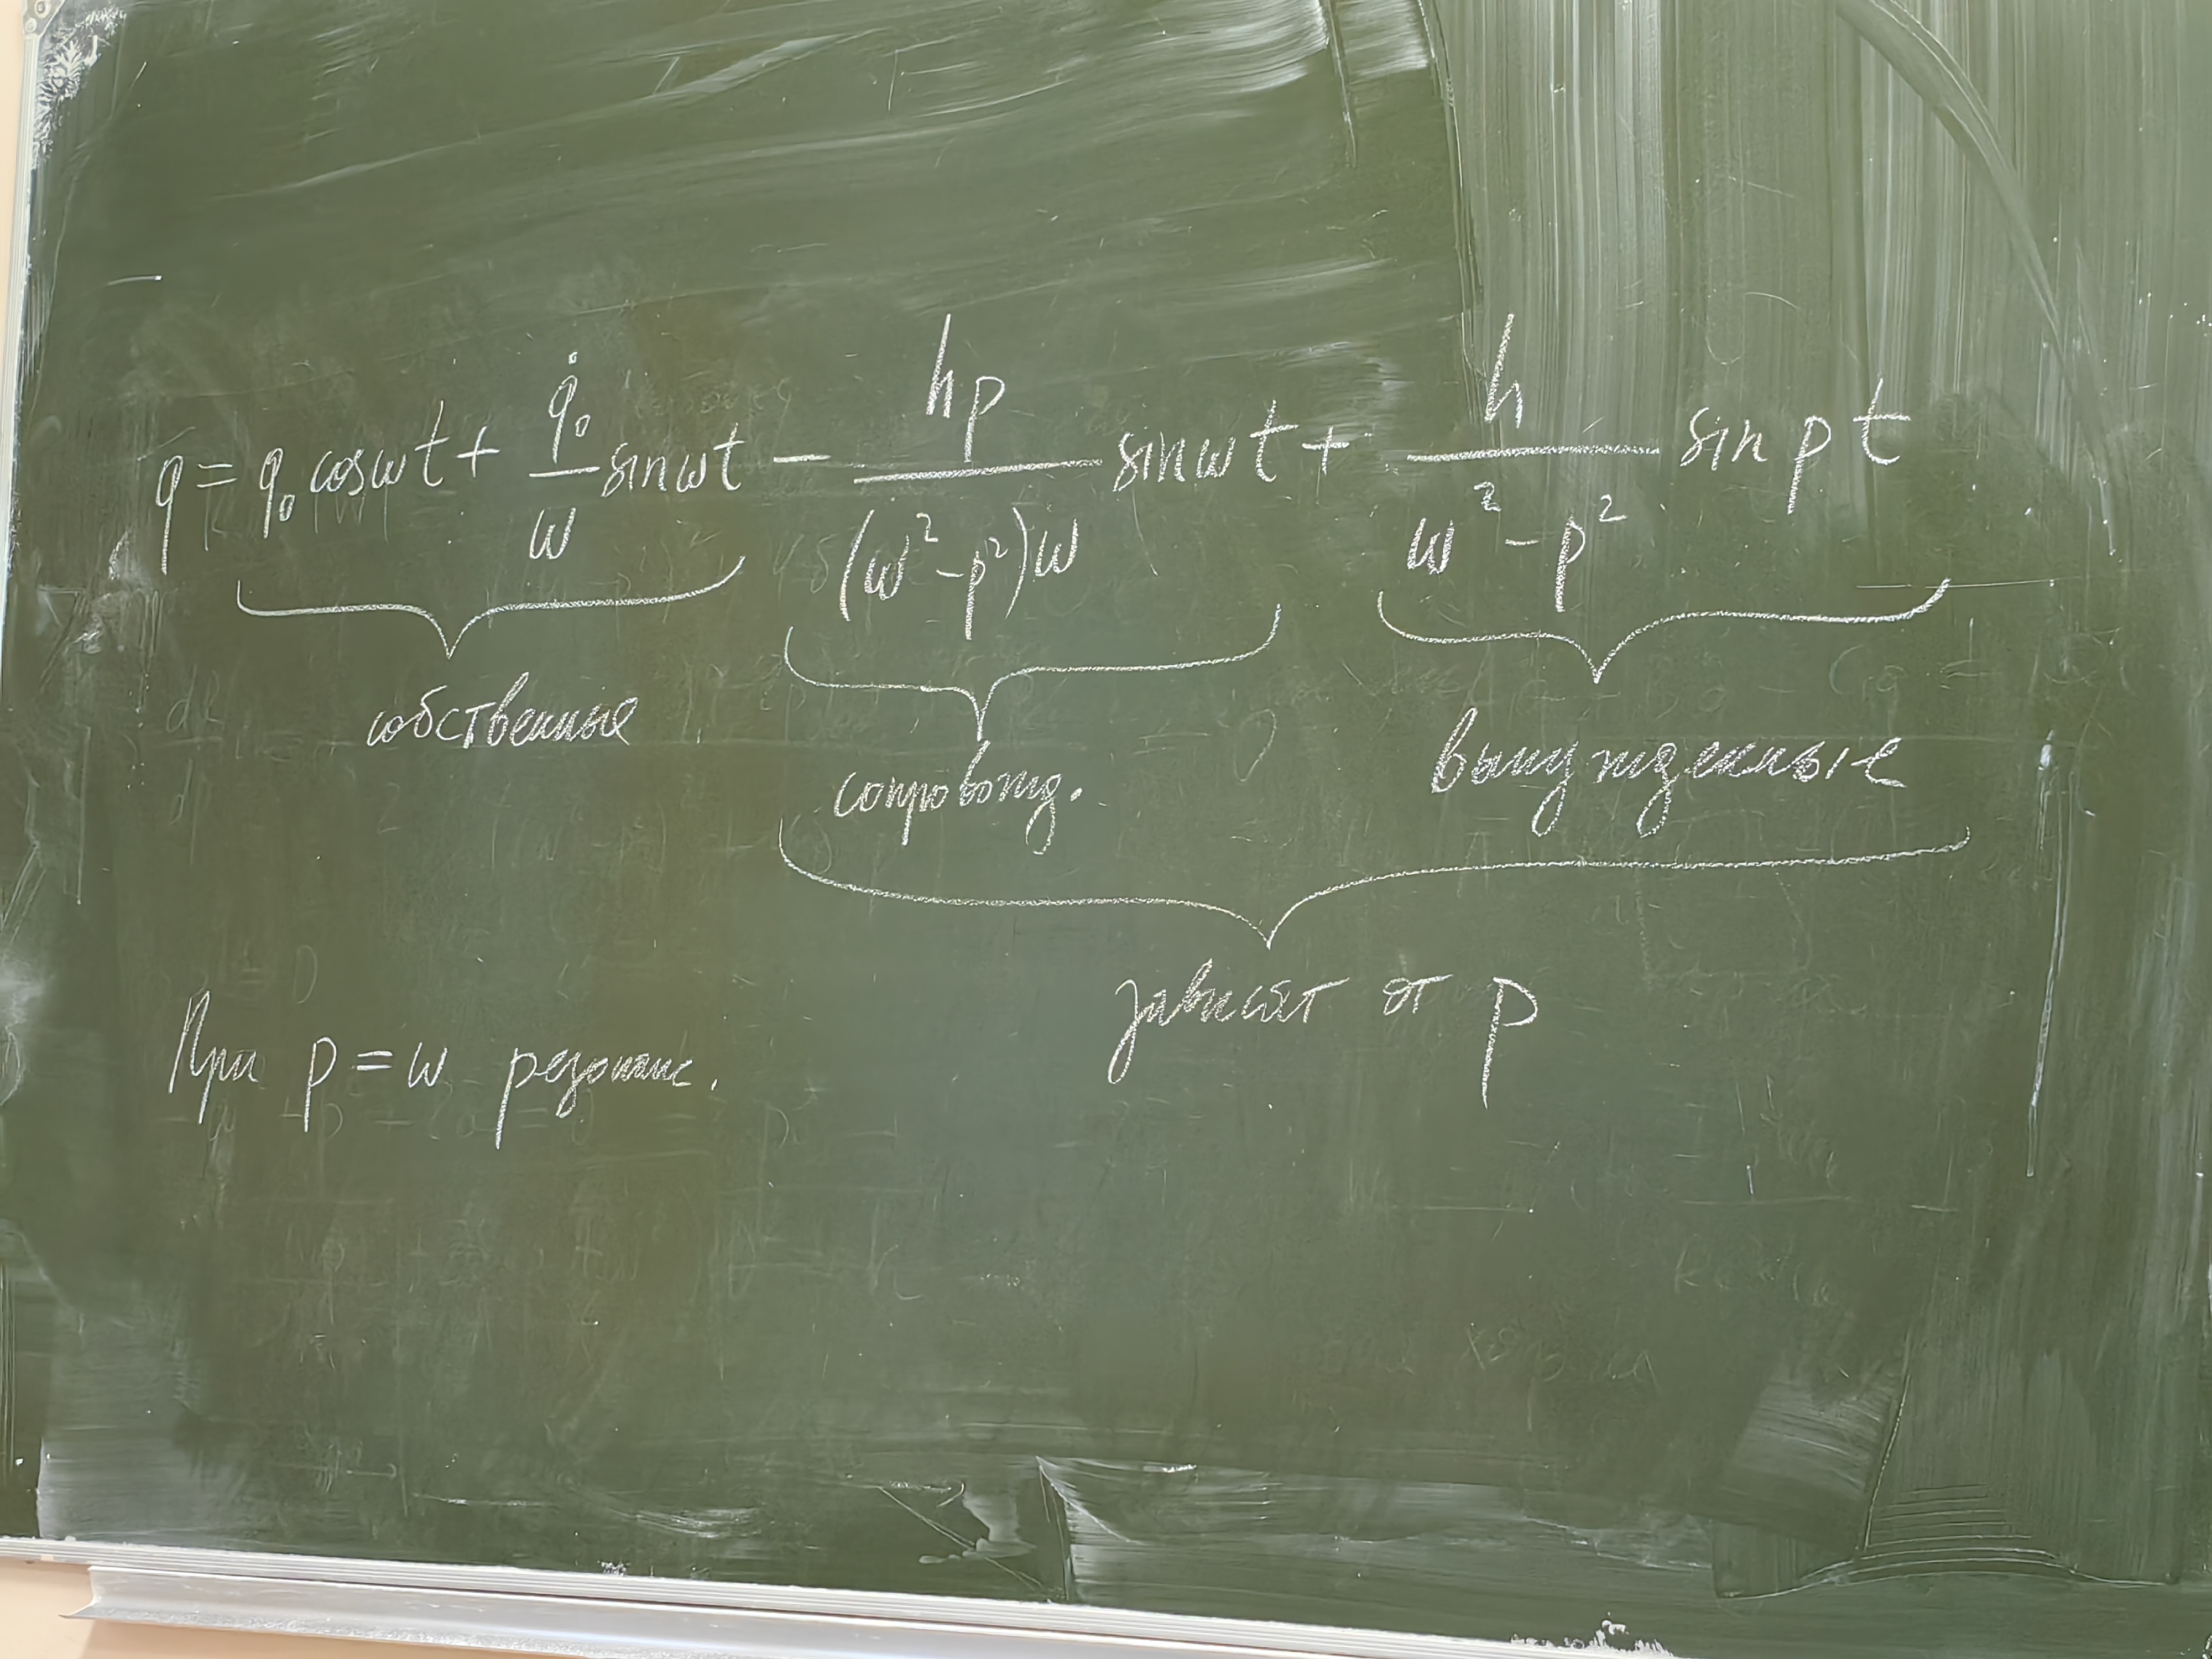 q = q₀ cos ωt + q̇₀/ω sin ωt − hp/((ω² − p²)ω) sin ωt + h/(ω² − p²) sin pt
собственные
сопровожд.
вынужденные
зависят от p
При p = ω резонанс.